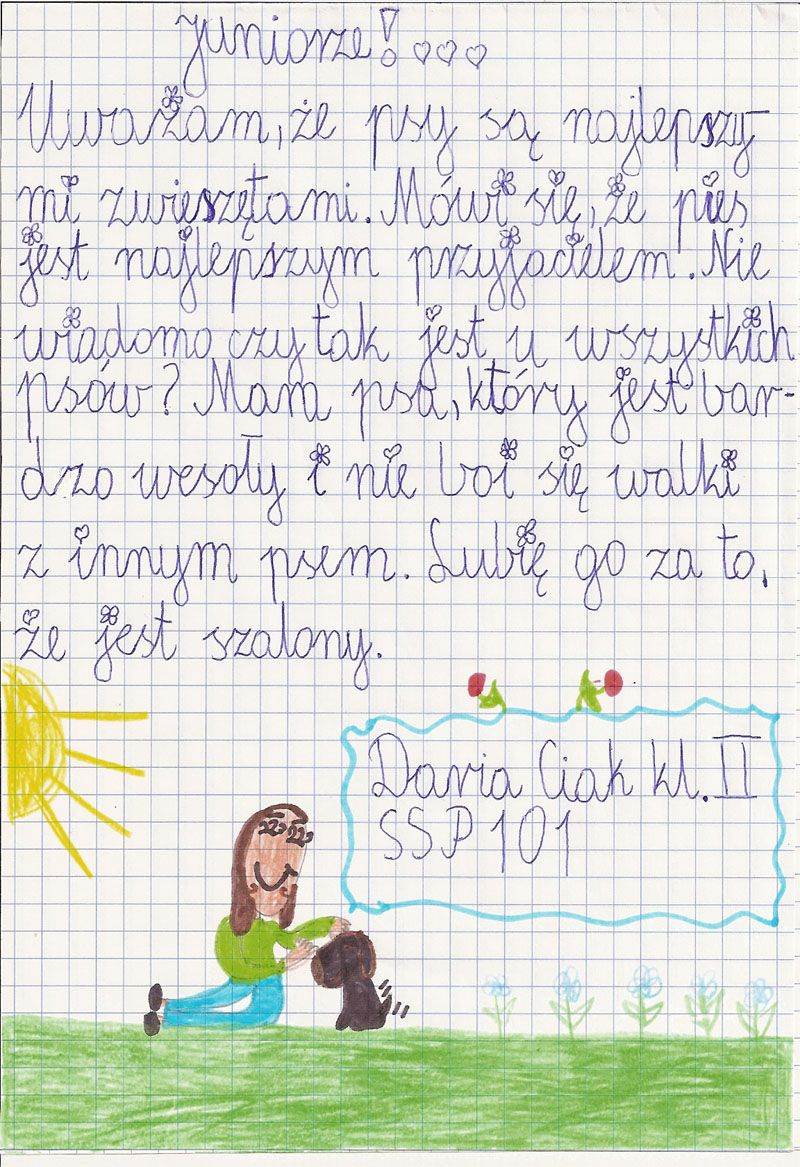 Juniorze!
Uważam, że psy są najlepszy-
mi zwierzętami. Mówi się, że pies
jest najlepszym przyjacielem. Nie
wiadomo czy tak jest u wszystkich
psów? Mam psa, który jest bar-
dzo wesoły i nie boi się walki
z innym psem. Lubię go za to,
że jest szalony.
Daria Ciak kl. II
SSP 101